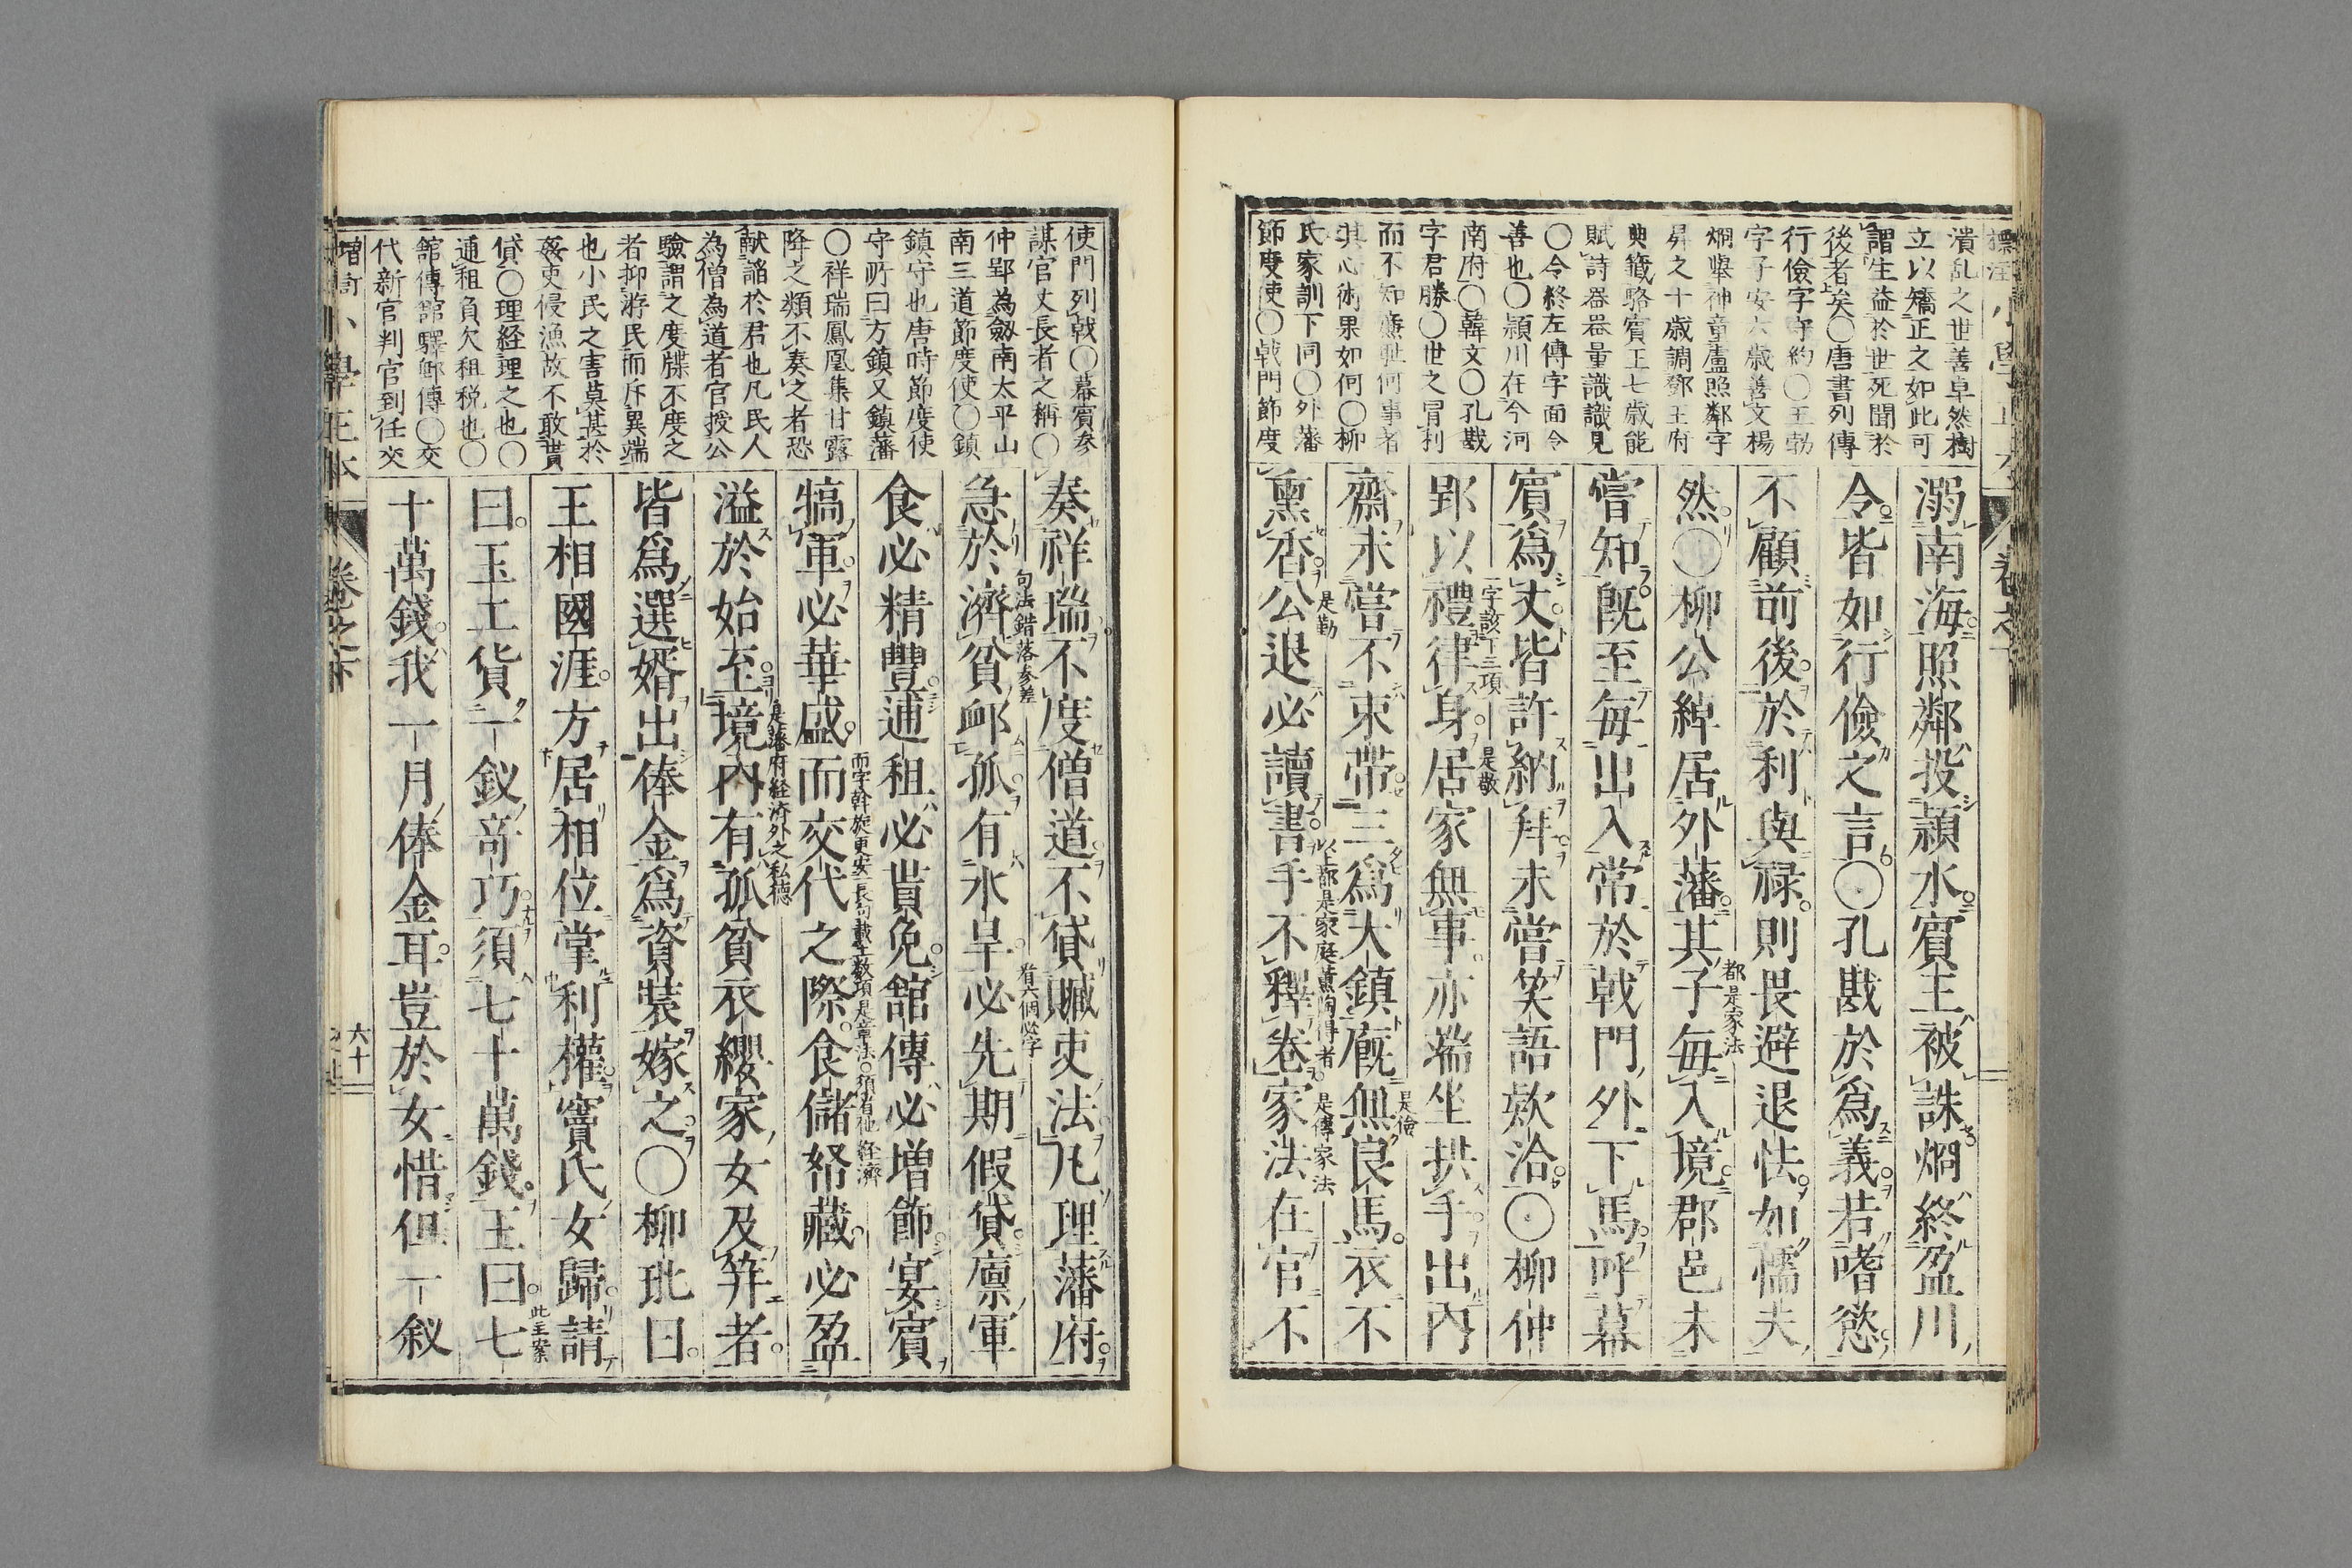 潰乱之世善卓然樹
立以矯正之如此可
謂生益於世死聞於
後者矣〇唐書列傳
行儉字守約〇王勃
字子安六歳善文楊
烱擧神童盧照鄰字
昇之十歳調鄧王府
典籖駱賓王七歳能
賦詩器器量識識見
〇令終左傳字面令
善也〇頴川在今河
南府〇韓文〇孔戡
字君勝〇世之冒利
而不知廉耻何事者
其心術果如何〇柳
氏家訓下同〇外藩
節度使〇戟門節度
溺南海照鄰投頴水賓王被誅烱終盈川
令皆如行儉之言〇孔戡於爲義若嗜慾
不顧前後於利與祿則畏避退怯如懦夫
然〇柳公綽居外藩其子毎入境郡邑未
都是家法
嘗知既至毎出入常於戟門外下馬呼幕
賓爲丈皆許納拜未嘗笑語欵洽〇柳仲
郢以禮律身居家無事亦端坐拱手出内
一字該下三項
是敬
齋未嘗不束帶三爲大鎮廐無良馬衣不
是儉
熏香公退必讀書手不釋卷家法在官不
是勤
以上都是家庭薫陶得者
是傳家法
使門列戟〇幕賓参
謀官丈長者之稱〇
仲郢為劔南太平山
南三道節度使〇鎮
鎮守也唐時節度使
守所曰方鎮又鎮藩
〇祥瑞鳳凰集甘露
降之類不奏之者恐
献諂於君也凡民人
為僧為道者官授公
驗謂之度牒不度之
者抑游民而斥異端
也小民之害莫甚於
姦吏侵漁故不敢貰
貸〇理経理之也〇
逋租負欠租税也〇
舘傳舘驛郵傳〇交
代新官判官到任交
奏祥瑞不度僧道不貸贓吏法凡理藩府
急於濟貧䘏孤有水旱必先期假貸廩軍
句法錯落参差
着六個必字
食必精豐逋租必貰免舘傳必増飾宴賓
犒軍必華盛而交代之際食儲帑藏必盈
而字幹旋更安一長句
溢於始至境内有孤貧衣纓家女及筓者
是藩府経済外之私徳
皆爲選婿出俸金爲資裝嫁之〇柳玭曰
王相國涯方居相位掌利權竇氏女歸請
曰玉工貨一釵竒巧須七十萬錢王曰七
此主案
十萬錢我一月俸金耳豈於女惜但一釵
増訂小學正本
卷之下
六十